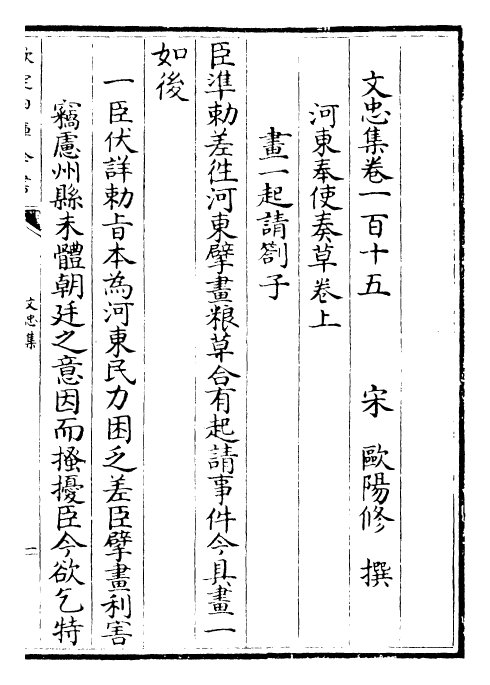 文忠集卷一百十五
宋 歐陽修 撰
河東奉使奏草卷上
畫一起請劄子
臣準勅差徃河東擘畫粮草合有起請事件今具畫一
如後
一臣伏詳勅㫖本為河東民力困乏差臣擘畫利害
竊慮州縣未體朝廷之意因而搔擾臣今欲乞特
文忠集
一